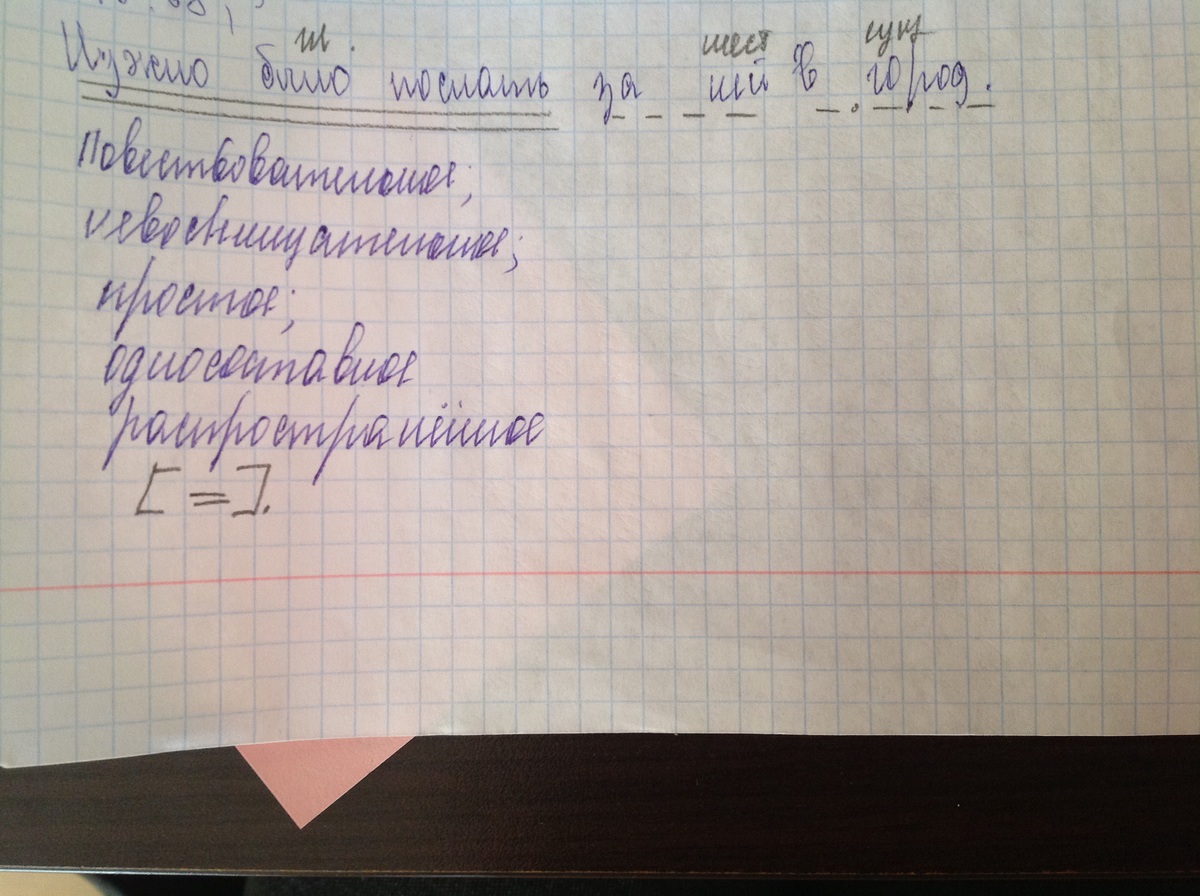 гл. мест сущ
Нужно было послать за ней в город.
Повествовательное;
невосклицательное;
простое;
односоставное
распространённое
[=].